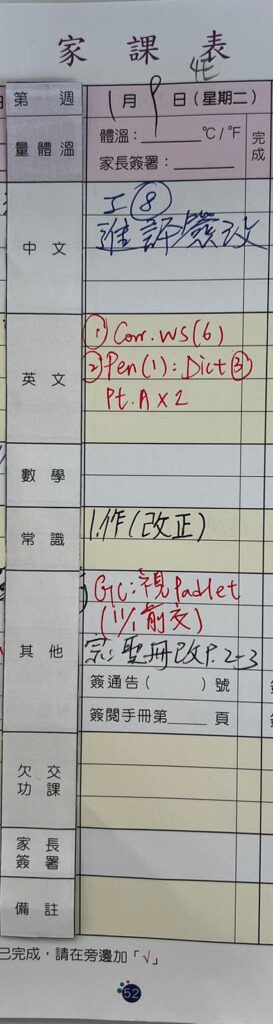 家課表
4E
第 週
1月9日(星期二)
量體溫
體溫：______°C/°F
家長簽署：______
完成
中文
工⑧
進評簽改
英文
① Corr. WS(6)
② Pen(1): Dict③
Pt. A x 2
數學
常識
1.作(改正)
其他
GC:視Padlet
(11/1前交)
宗:聖冊改P.2-3
簽通告( )號
簽閱手冊第____頁
欠交功課
家長簽署
備註
已完成，請在旁邊加「√」
52